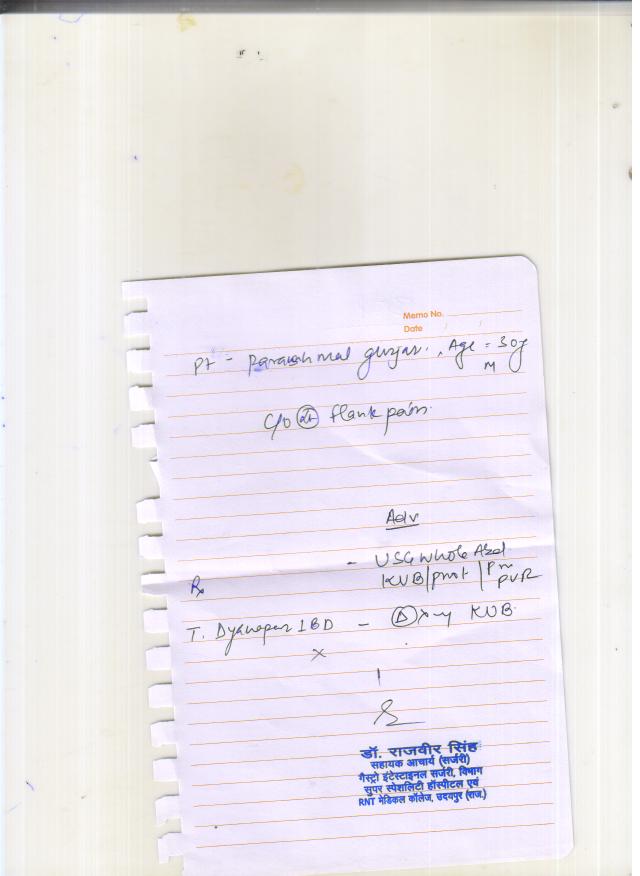 Memo No.
Date
Pt - Parasmal gurjar. , Age = 30y
M
C/O flank pain.
Adv
- USG whole Abd
KUB/prost / Pre
PVR
Rx
T. 1 BD - X-ray KUB
डॉ. राजवीर सिंह
सहायक आचार्य (सर्जरी)
गैस्ट्रो इंटेस्टाइनल सर्जरी, विभाग
सुपर स्पेशलिटी हॉस्पीटल एवं
RNT मेडिकल कॉलेज, उदयपुर (राज.)